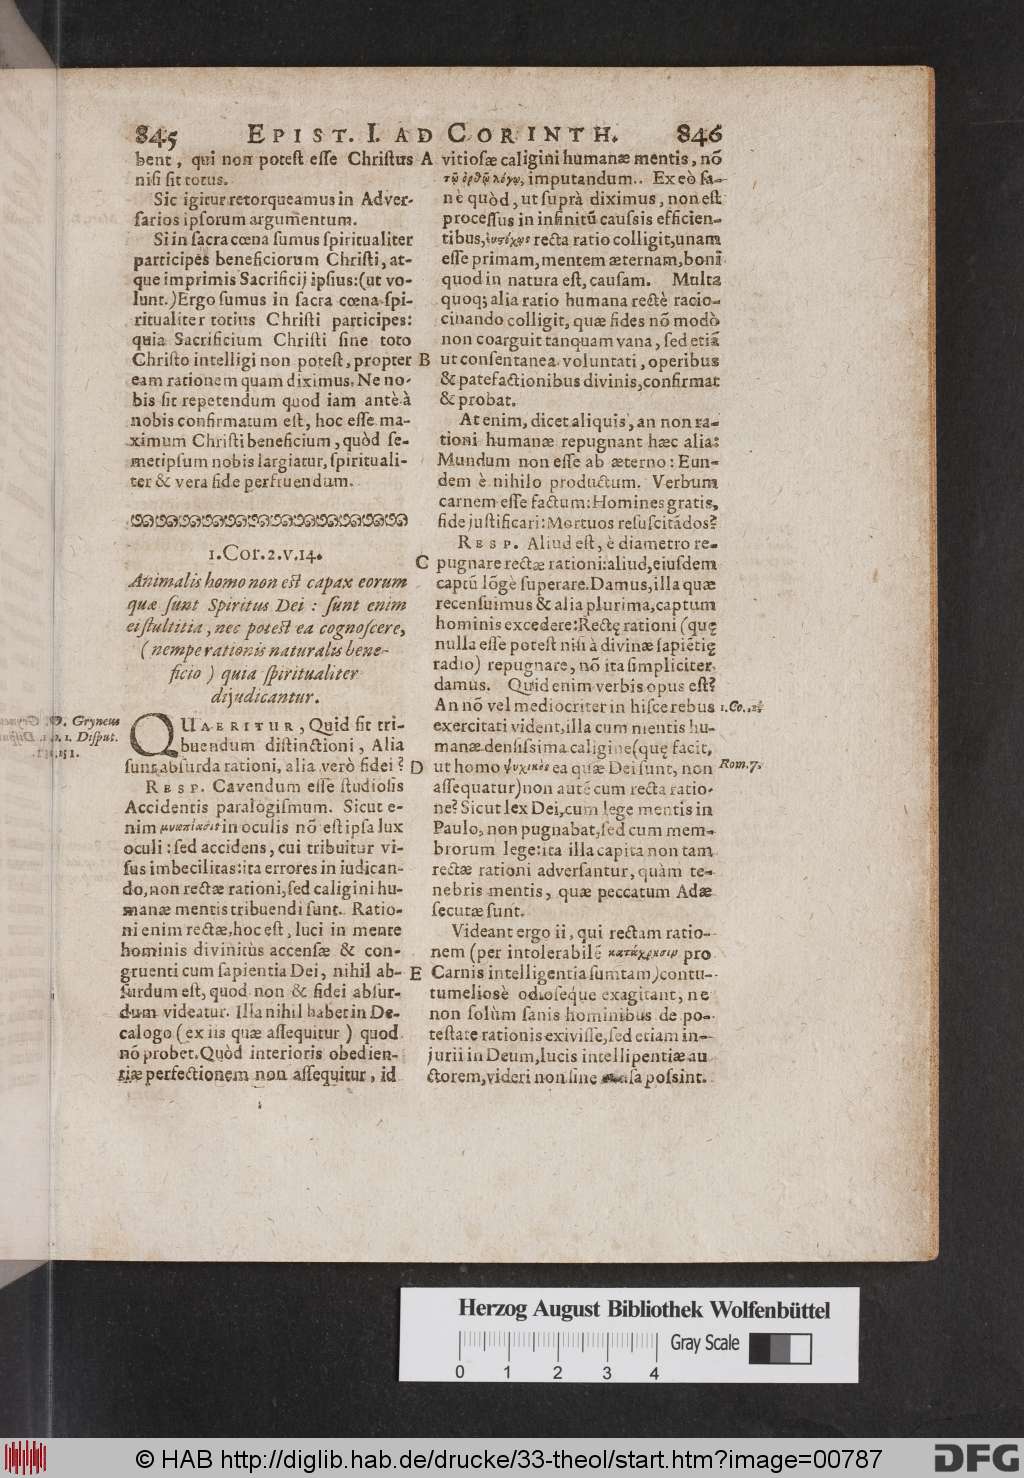 845 EPIST. I. AD CORINTH. 846
bent, qui non potest esse Christus
nisi sit totus.
Sic igitur retorqueamus in Adver-
sarios ipsorum argumentum.
Si in sacra cœna sumus spiritualiter
participes beneficiorum Christi, at-
que imprimis Sacrificij ipsius:(ut vo-
lunt.)Ergo sumus in sacra cœna spi-
ritualiter totius Christi participes:
quia Sacrificium Christi sine toto
Christo intelligi non potest, propter
eam rationem quam diximus. Ne no-
bis sit repetendum quod iam antè à
nobis confirmatum est, hoc esse ma-
ximum Christi beneficium, quòd se-
metipsum nobis largiatur, spirituali-
ter & vera fide perfruendum.
1.Cor.2.v.14.
Animalis homo non est capax eorum
quæ sunt Spiritus Dei: sunt enim
ei stultitia, nec potest ea cognoscere,
(nempe rationis naturalis bene-
ficio) quia spiritualiter
dijudicantur.
D. Gryneus
to. 1. Disput.
151.
QUAERITUR, Quid sit tri-
buendum distinctioni, Alia
sunt absurda rationi, alia verò fidei?
RESP. Cavendum esse studiosis
Accidentis paralogismum. Sicut e-
nim in oculis nõ est ipsa lux
oculi: sed accidens, cui tribuitur vi-
sus imbecilitas: ita errores in iudican-
do, non rectæ rationi, sed caligini hu-
manæ mentis tribuendi sunt. Ratio-
ni enim rectæ, hoc est, luci in mente
hominis divinitùs accensæ & con-
gruenti cum sapientia Dei, nihil ab-
surdum est, quod non & fidei absur-
dum videatur. Illa nihil habet in De-
calogo (ex iis quæ assequitur) quod
nõ probet. Quòd interioris obedien-
tiæ perfectionem non assequitur, id
A
B
C
D
E
vitiosæ caligini humanæ mentis, nõ
τῷ ὀρθῷ λόγῳ, imputandum.. Ex eò sa-
nè quòd, ut suprà diximus, non est
processus in infinitũ causis efficien-
tibus, recta ratio colligit, unam
esse primam, mentem æternam, boni
quod in natura est, causam. Multa
quoq; alia ratio humana rectè racio-
cinando colligit, quæ fides nõ modò
non coarguit tanquam vana, sed etiã
ut consentanea voluntati, operibus
& patefactionibus divinis, confirmat
& probat.
At enim, dicet aliquis, an non ra-
tioni humanæ repugnant hæc alia:
Mundum non esse ab æterno: Eun-
dem è nihilo productum. Verbum
carnem esse factum: Homines gratis,
fide justificari: Mortuos resuscitãdos?
RESP. Aliud est, è diametro re-
pugnare rectæ rationi: aliud, eiusdem
captũ lõgè superare. Damus, illa quæ
recensuimus & alia plurima, captum
hominis excedere: Rectę rationi (quę
nulla esse potest nisi à divinæ sapiẽtię
radio) repugnare, nõ ita simpliciter
damus. Quid enim verbis opus est?
An nõ vel mediocriter in hisce rebus
exercitati vident, illa cum mentis hu-
manæ densissima caligine (quę facit,
ut homo ψυχικὸς ea quæ Dei sunt, non
assequatur) non autẽ cum recta ratio-
ne? Sicut lex Dei, cum lege mentis in
Paulo, non pugnabat, sed cum mem-
brorum lege: ita illa capita non tam
rectæ rationi adversantur, quàm te-
nebris mentis, quæ peccatum Adæ
secutæ sunt.
Videant ergo ii, qui rectam ratio-
nem (per intolerabilẽ κατάχρησιν pro
Carnis intelligentia sumtam) contu-
tumeliosè odioseque exagitant, ne
non solùm sanis hominibus de po-
testate rationis exivisse, sed etiam in-
jurii in Deum, lucis intellipentiæ au
ctorem, videri non sine possint.
1.Co.,2.
Rom.7.
Herzog August Bibliothek Wolfenbüttel
Gray Scale
0 1 2 3 4
© HAB http://diglib.hab.de/drucke/33-theol/start.htm?image=00787
DFG